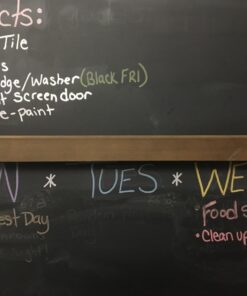 cts:
Tile
s
dge/Washer (Black FRI)
t screen door
e-paint
N * TUES * WE
est Day
Food S
• Clean up